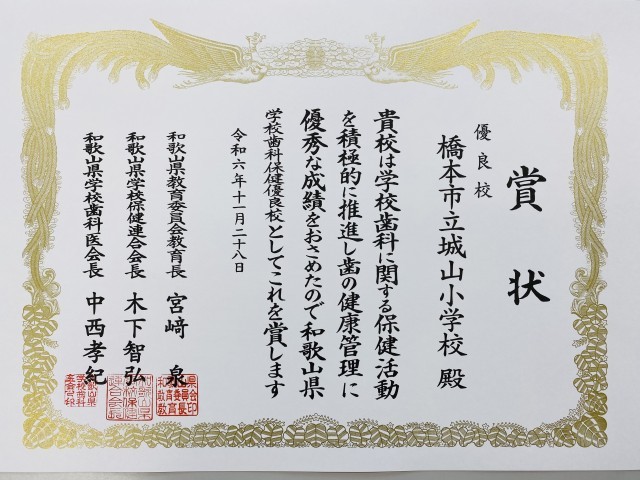 賞状
優良校
橋本市立城山小学校 殿
貴校は学校歯科に関する保健活動
を積極的に推進し歯の健康管理に
優秀な成績をおさめたので和歌山県
学校歯科保健優良校としてこれを賞します
令和六年十一月二十八日
和歌山県教育委員会教育長 宮﨑 泉
和歌山県学校保健連合会長 木下智弘
和歌山県学校歯科医会長 中西孝紀